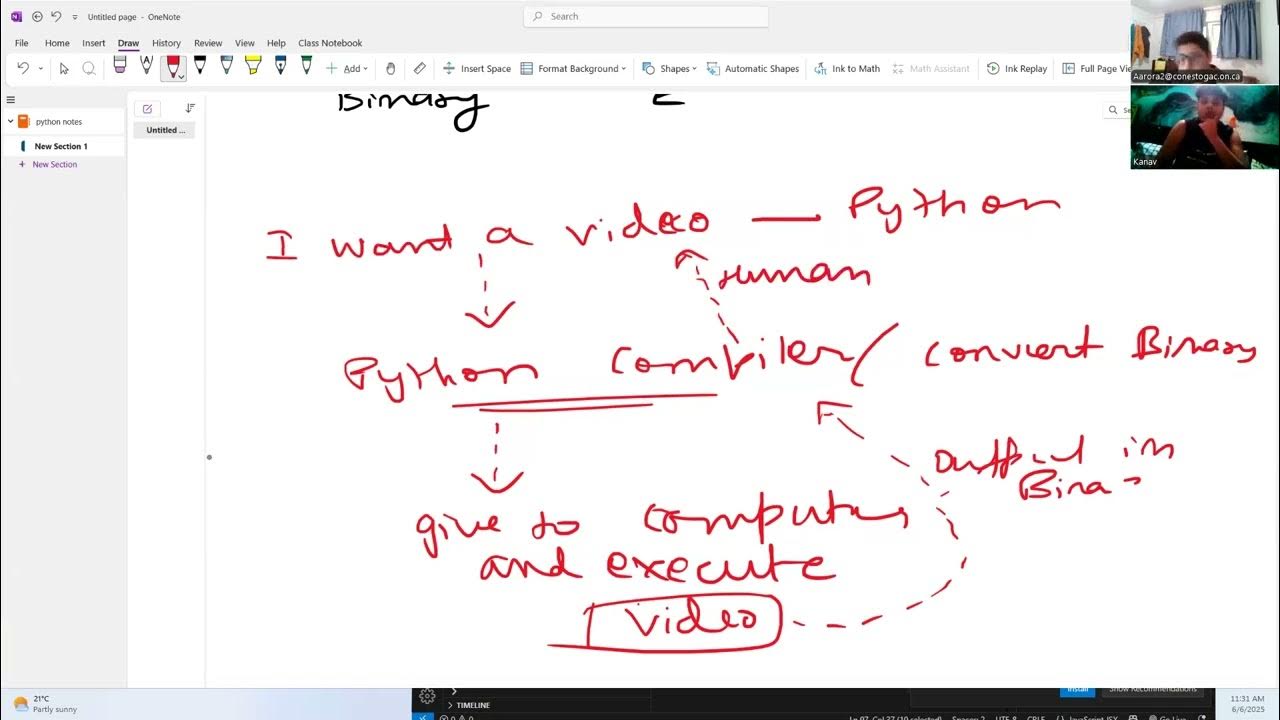 Untitled page - OneNote
Search
File Home Insert Draw History Review View Help Class Notebook
Add Insert Space Format Background Shapes Automatic Shapes Ink to Math Math Assistant Ink Replay Full Page Vie
Aarora2@conestogac.on.ca
Kanav
python notes
New Section 1
New Section
Untitled ...
Binary
I want a video — Python
Human
Python Compiler/ convert Binary
output in
Bina
give to computer
and execute
video
21°C
Partly sunny
TIMELINE
Install Show Recommendations
11:31 AM
6/6/2025